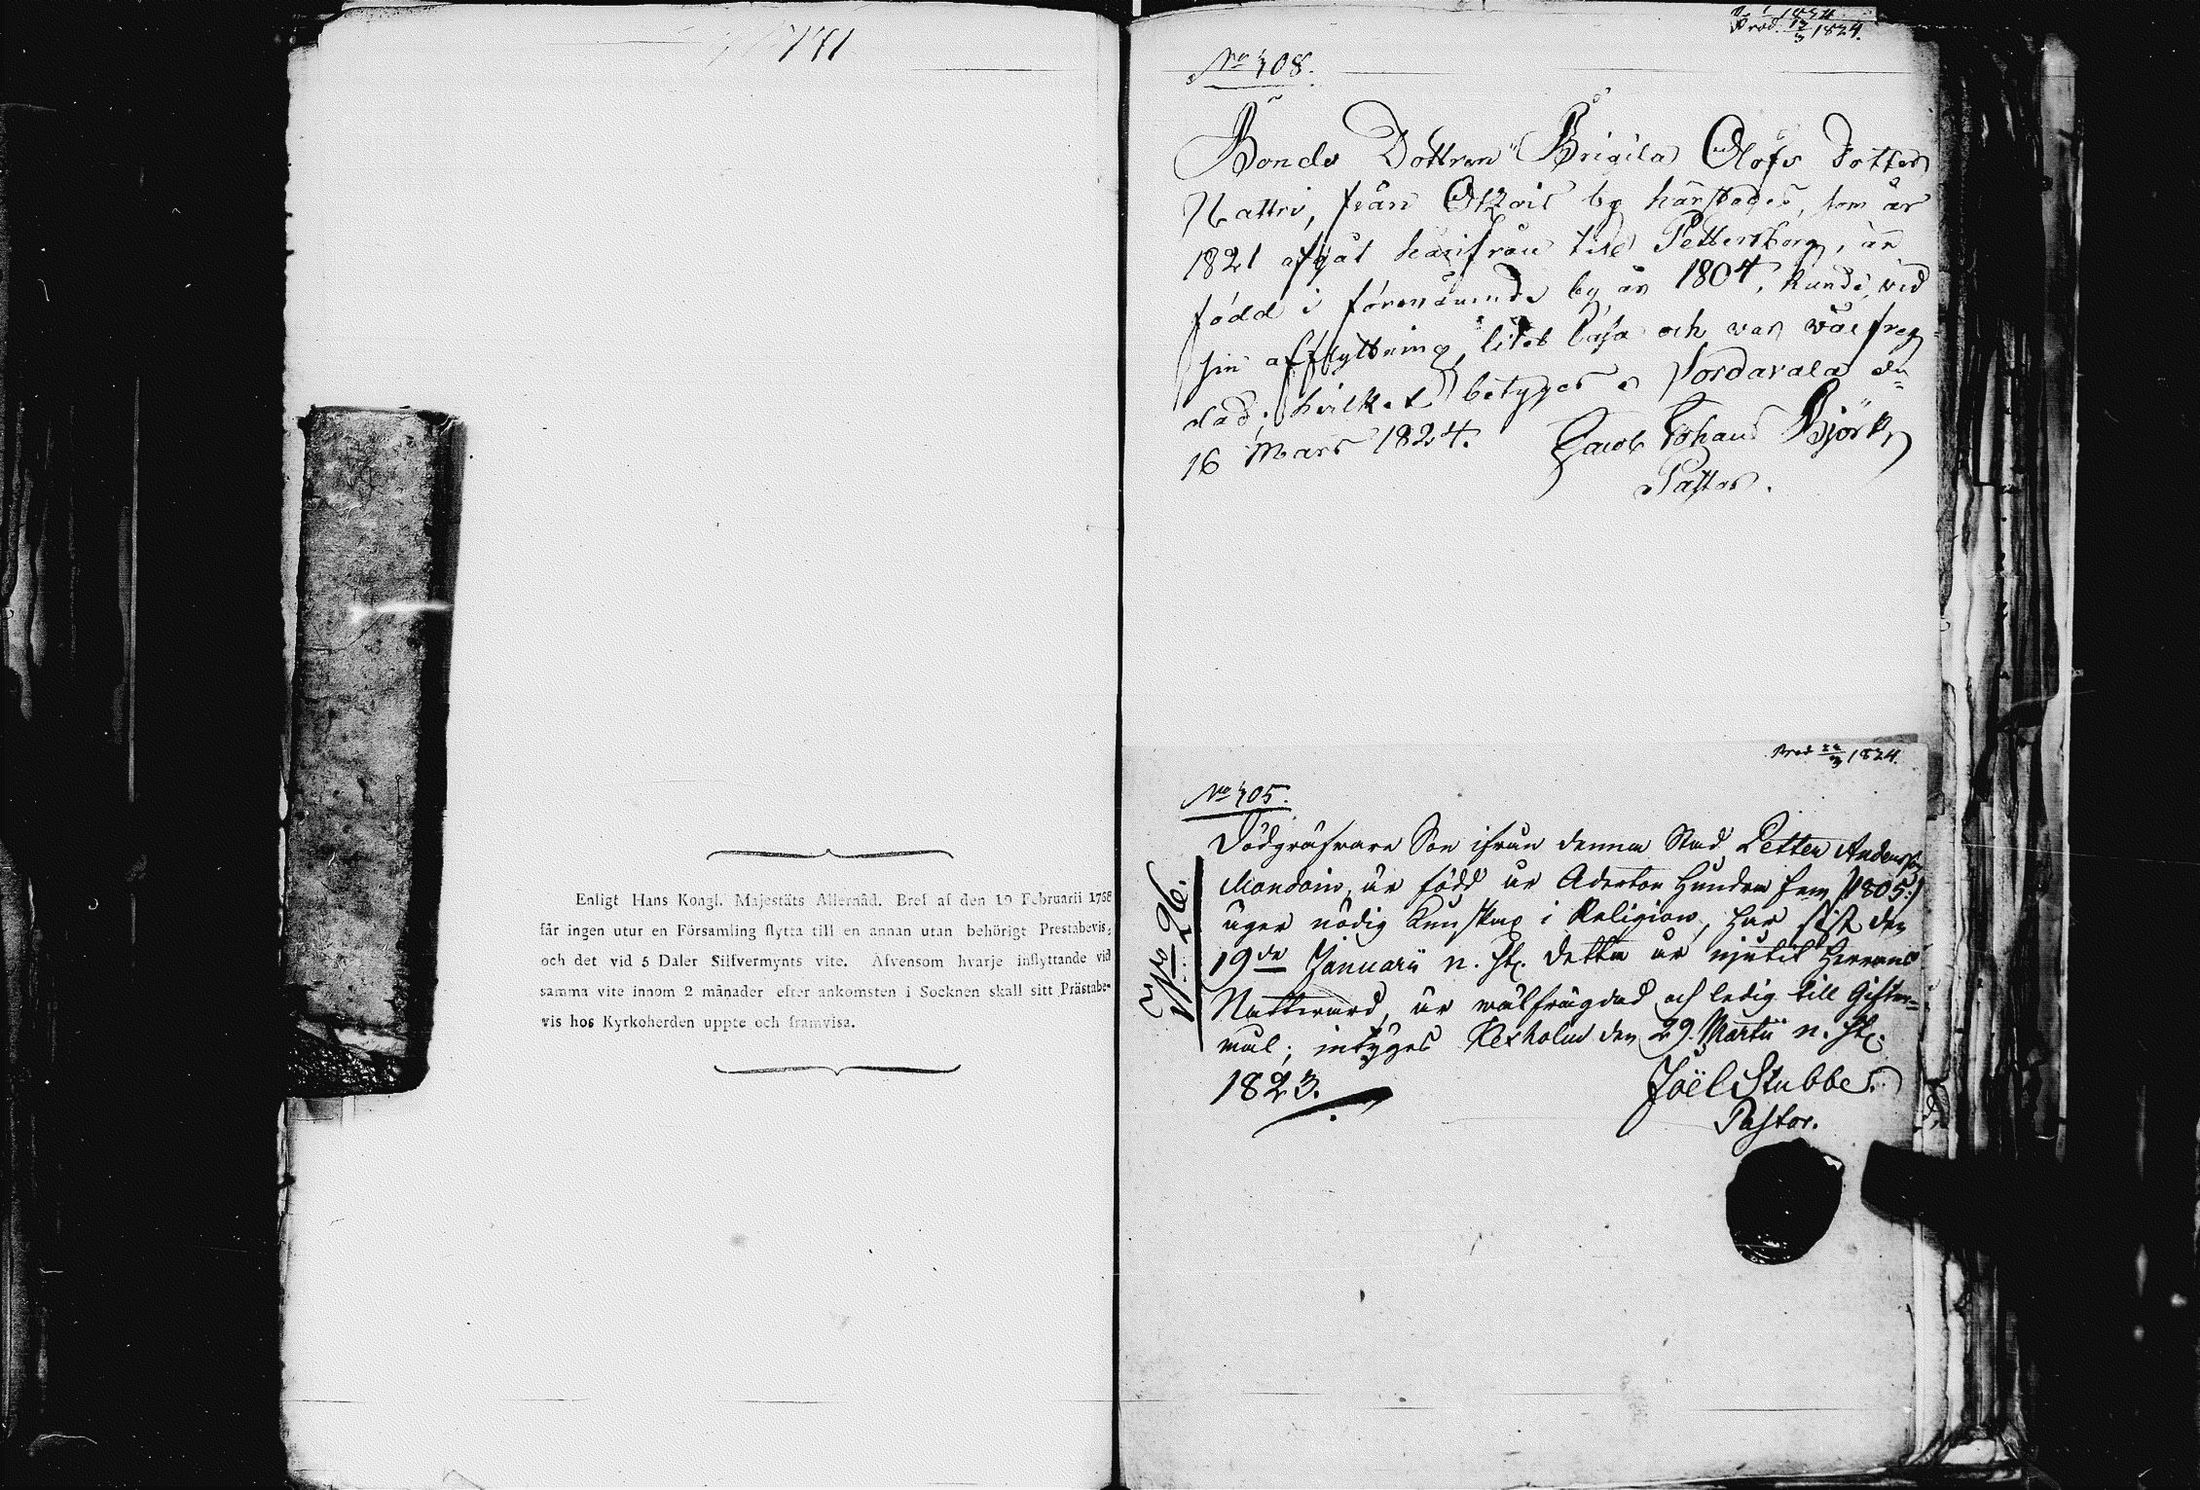 171
Enligt Hans Kongl. Majestäts Allernåd. Bref af den 10 Februarii 1768
får ingen utur en Församling flytta till en annan utan behörigt Prestabevis,
och det vid 5 Daler Silfvermynts vite. Äfvensom hvarje inflyttande vid
samma vite innom 2 månader efter ankomsten i Socknen skall sitt Prästabe-
vis hos Kyrkoherden uppte och framvisa.
Prod. 1824.
No 408.
Bonde Dottren Brigita Olofs Dotter
Nattri, från by härstädes, som år
1821 afgåt härifrån till Pettersborg, är
född i förenämnde by år 1804, kunde vid
sin afflyttning, litet läsa och var välfreg-
dad; hvilket betygar Sordavala den
16 Mars 1824. Jacob Johan Björk
Pastor.
Prod 22/3 1824.
No 405.
No 26.
Dödgräfvare Son ifrån denna Stad Petter Andersson
är född år Aderton Hundra fem /:1805:/
äger nödig Kunskap i Religion, har sist den
19de Januarii n. st. detta år njutit Herrans
Nattvard, är välfrägdad och ledig till Gifter=
mål; intygas Kexholm den 29. Martii n. st.
1823. Joël Stubbe.
Pastor.